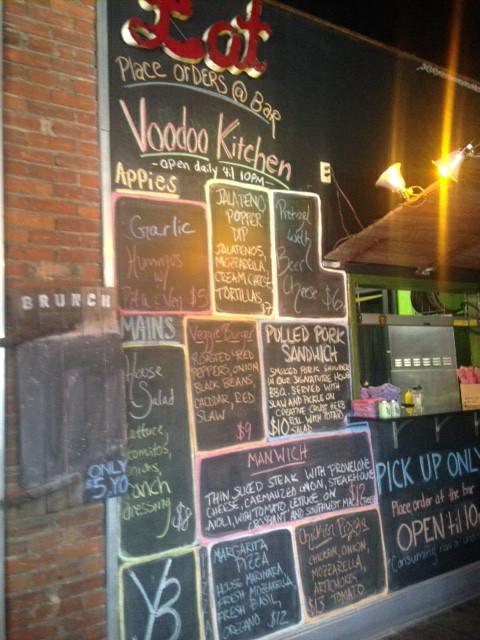 Eat
Place orders @ Bar
Voodoo Kitchen
- open daily 'til 10pm -
Appies
Garlic
Hummus
w/
Pita & Veg $5
JALAPENO
POPPER
DIP
JALAPENOS,
MOZZARELLA,
CREAM CHEESE,
TORTILLAS
$7
Pretzel
with
Beer
Cheese
$6
BRUNCH
MAINS
House
Salad
Lettuce,
tomatos,
onions,
ranch
dressing
$8
Veggie Burger
ROASTED RED
PEPPERS, ONION,
BLACK BEANS,
CHEDDAR, RED
SLAW
$9
PULLED PORK
SANDWICH
SMOKED PORK SHOULDER
IN OUR SIGNATURE HOUSE
BBQ. SERVED WITH
SLAW AND PICKLE ON
CREATIVE CRUST HERB
$10 ROLL WITH POTATO
SALAD
ONLY
$5.
MANWICH
THIN SLICED STEAK WITH PROVELONE
CHEESE, CARMALIZED ONION, STEAKHOUSE
AIOLI, WITH TOMATO, LETTUCE ON
CROISSANT AND SOUTHWEST MAC
VB
MARGARITA
PIZZA
HOUSE MARINARA,
FRESH MOZZARELLA,
FRESH BASIL,
OREGANO $12
Chicken Pizza
CHICKEN, ONION,
MOZZARELLA,
ARTICHOKES,
$13 TOMATO
PICK UP ONLY
Place order at the bar
OPEN til 10